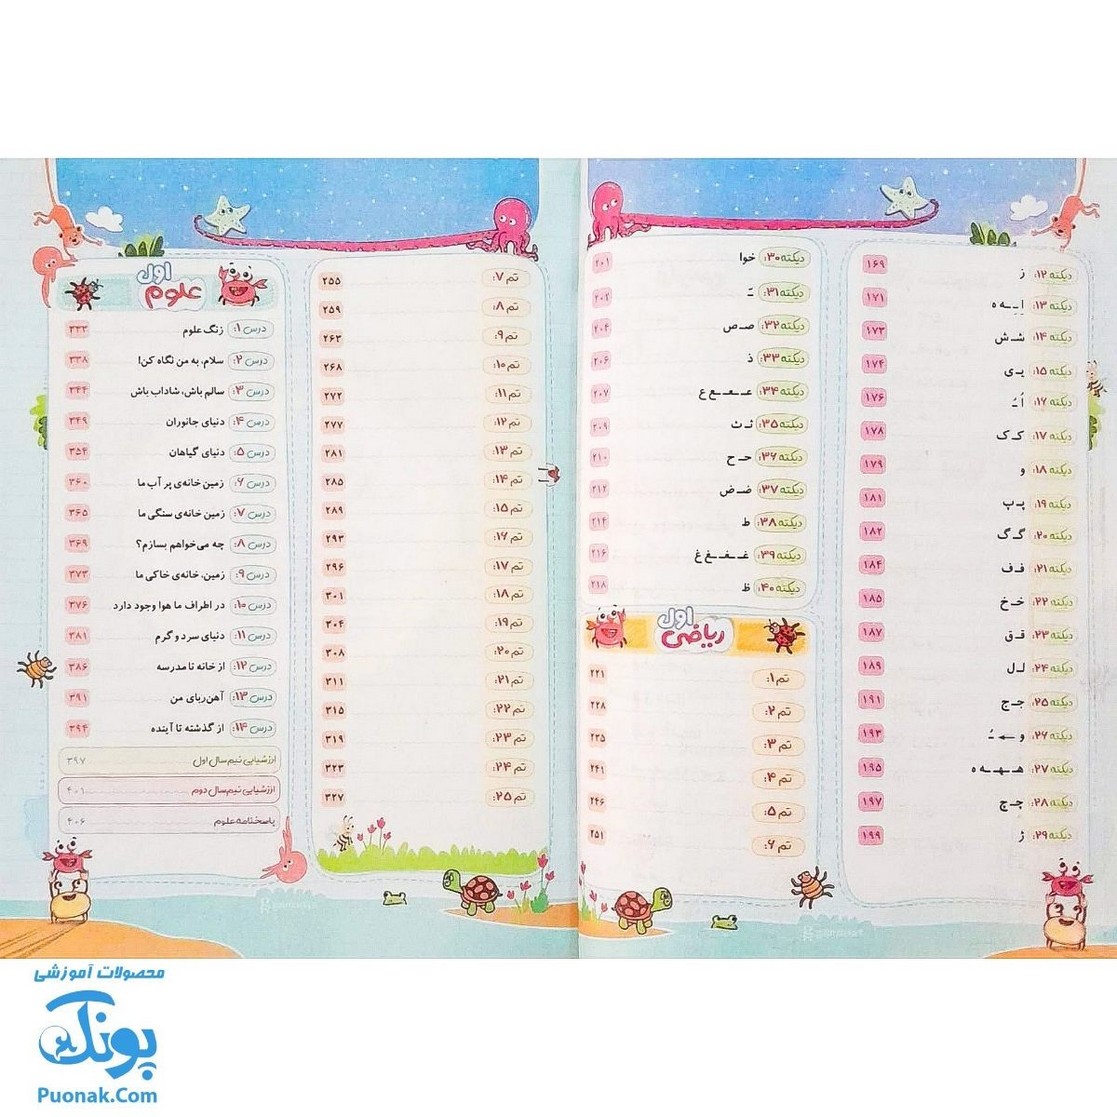 دیکته ۱۲: ز ۱۶۹
دیکته ۱۳: اِ ـِ ـه ه ۱۷۱
دیکته ۱۴: شـ ش ۱۷۳
دیکته ۱۵: یـ ی ۱۷۴
دیکته ۱۶: اُ ـُ ۱۷۶
دیکته ۱۷: کـ ک ۱۷۸
دیکته ۱۸: و ۱۷۹
دیکته ۱۹: پـ پ ۱۸۱
دیکته ۲۰: گـ گ ۱۸۲
دیکته ۲۱: فـ ف ۱۸۴
دیکته ۲۲: خـ خ ۱۸۵
دیکته ۲۳: قـ ق ۱۸۷
دیکته ۲۴: لـ ل ۱۸۹
دیکته ۲۵: جـ ج ۱۹۱
دیکته ۲۶: و ← ـُ ۱۹۳
دیکته ۲۷: هـ ـهـ ـه ه ۱۹۵
دیکته ۲۸: چـ چ ۱۹۷
دیکته ۲۹: ژ ۱۹۹
دیکته ۳۰: خوا ۲۰۱
دیکته ۳۱: ـّ ۲۰۲
دیکته ۳۲: صـ ص ۲۰۴
دیکته ۳۳: ذ ۲۰۶
دیکته ۳۴: عـ ـعـ ـع ع ۲۰۷
دیکته ۳۵: ثـ ث ۲۰۹
دیکته ۳۶: حـ ح ۲۱۰
دیکته ۳۷: ضـ ض ۲۱۲
دیکته ۳۸: ط ۲۱۴
دیکته ۳۹: غـ ـغـ ـغ غ ۲۱۶
دیکته ۴۰: ظ ۲۱۸
ریاضی اول
تم ۱: ۲۲۱
تم ۲: ۲۲۸
تم ۳: ۲۳۵
تم ۴: ۲۴۱
تم ۵: ۲۴۶
تم ۶: ۲۵۱
تم ۷: ۲۵۵
تم ۸: ۲۵۹
تم ۹: ۲۶۳
تم ۱۰: ۲۶۸
تم ۱۱: ۲۷۲
تم ۱۲: ۲۷۷
تم ۱۳: ۲۸۱
تم ۱۴: ۲۸۵
تم ۱۵: ۲۸۹
تم ۱۶: ۲۹۳
تم ۱۷: ۲۹۶
تم ۱۸: ۳۰۱
تم ۱۹: ۳۰۴
تم ۲۰: ۳۰۸
تم ۲۱: ۳۱۱
تم ۲۲: ۳۱۵
تم ۲۳: ۳۱۹
تم ۲۴: ۳۲۳
تم ۲۵: ۳۲۷
علوم اول
درس ۱: زنگ علوم ۳۳۳
درس ۲: سلام، به من نگاه کن! ۳۳۸
درس ۳: سالم باش، شاداب باش ۳۴۴
درس ۴: دنیای جانوران ۳۴۹
درس ۵: دنیای گیاهان ۳۵۴
درس ۶: زمین خانه‌ی پر آب ما ۳۶۰
درس ۷: زمین خانه‌ی سنگی ما ۳۶۵
درس ۸: چه می‌خواهم بسازم؟ ۳۶۹
درس ۹: زمین، خانه‌ی خاکی ما ۳۷۳
درس ۱۰: در اطراف ما هوا وجود دارد ۳۷۶
درس ۱۱: دنیای سرد و گرم ۳۸۱
درس ۱۲: از خانه تا مدرسه ۳۸۶
درس ۱۳: آهن‌ربای من ۳۹۱
درس ۱۴: از گذشته تا آینده ۳۹۴
ارزشیابی نیم‌سال اول ۳۹۷
ارزشیابی نیم‌سال دوم ۴۰۱
پاسخنامه علوم ۴۰۶
محصولات آموزشی
پونک
Puonak.Com